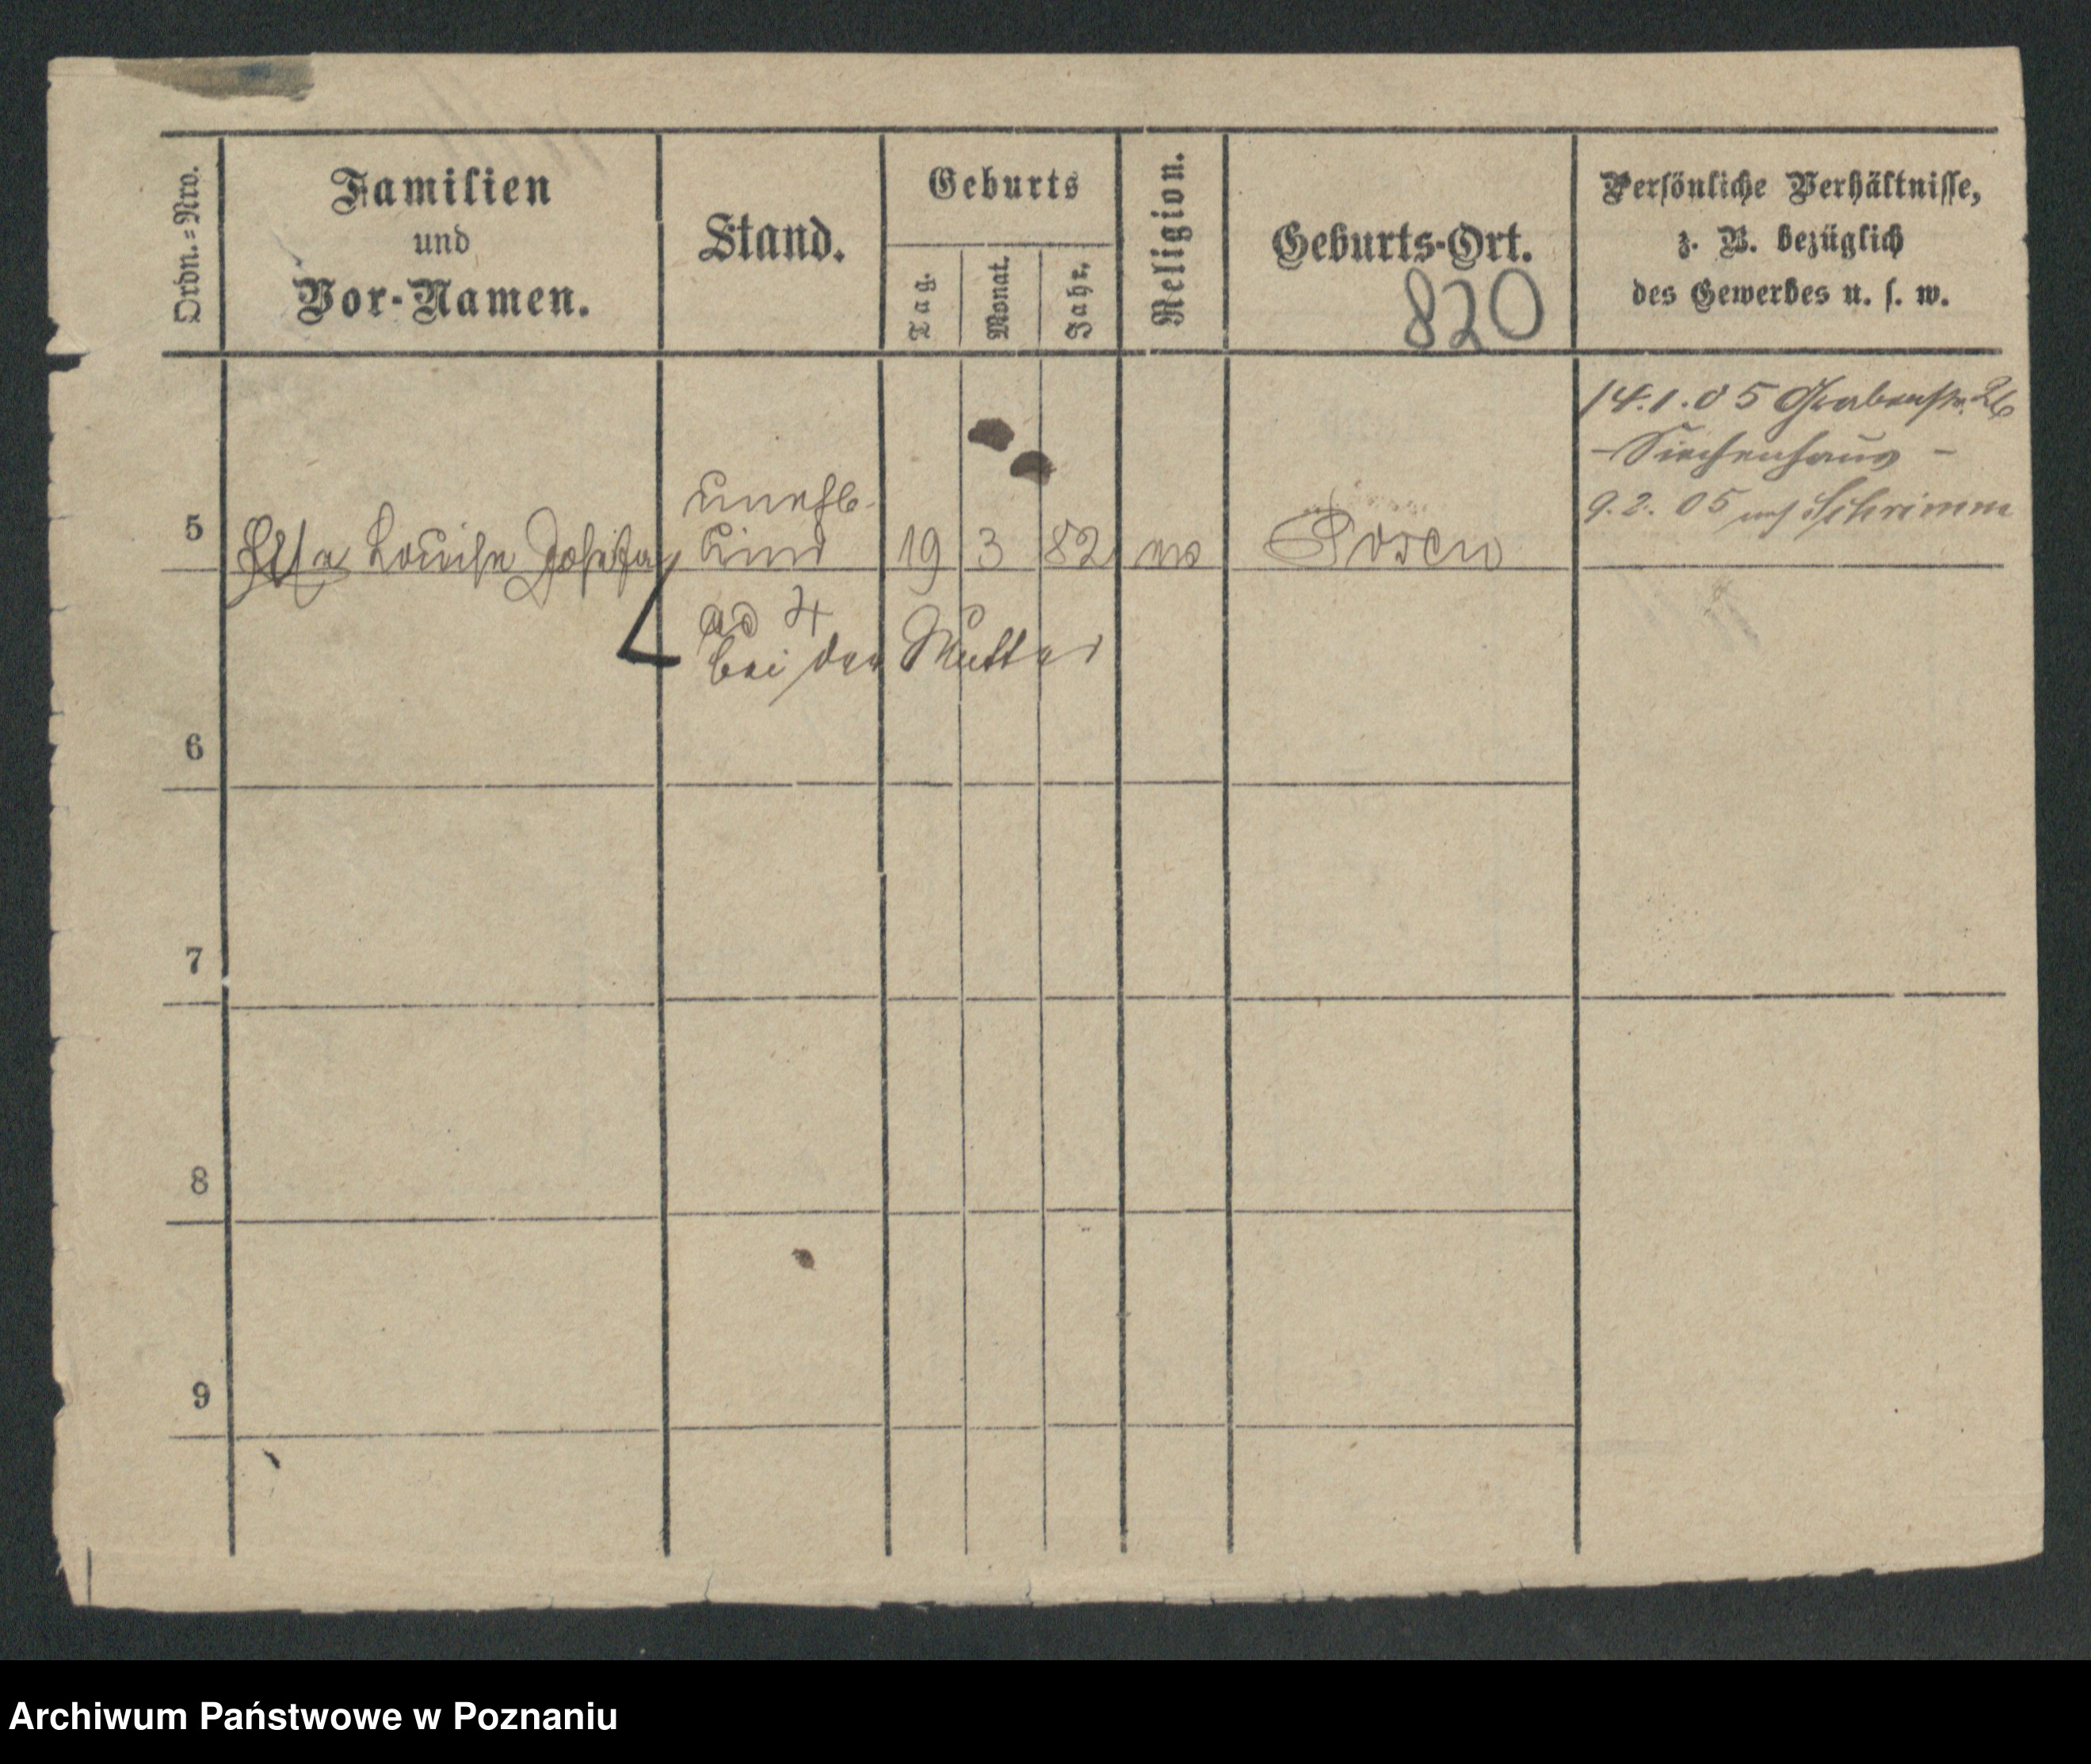 Ordn.=Nro.
Familien
und
Vor-Namen.
Stand.
Geburts
Tag.
Monat.
Jahr.
Religion.
Geburts-Ort.
820
Persönliche Verhältnisse,
z. B. bezüglich
des Gewerbes u. s. w.
14.1.05 Grabenstr. 26
- Siechenhaus -
9.2.05 nach Schrimm
unehl.
5 Else Louise Kind 19 3 82 Posen
ad 4
bei der Mutter
6
7
8
9
Archiwum Państwowe w Poznaniu